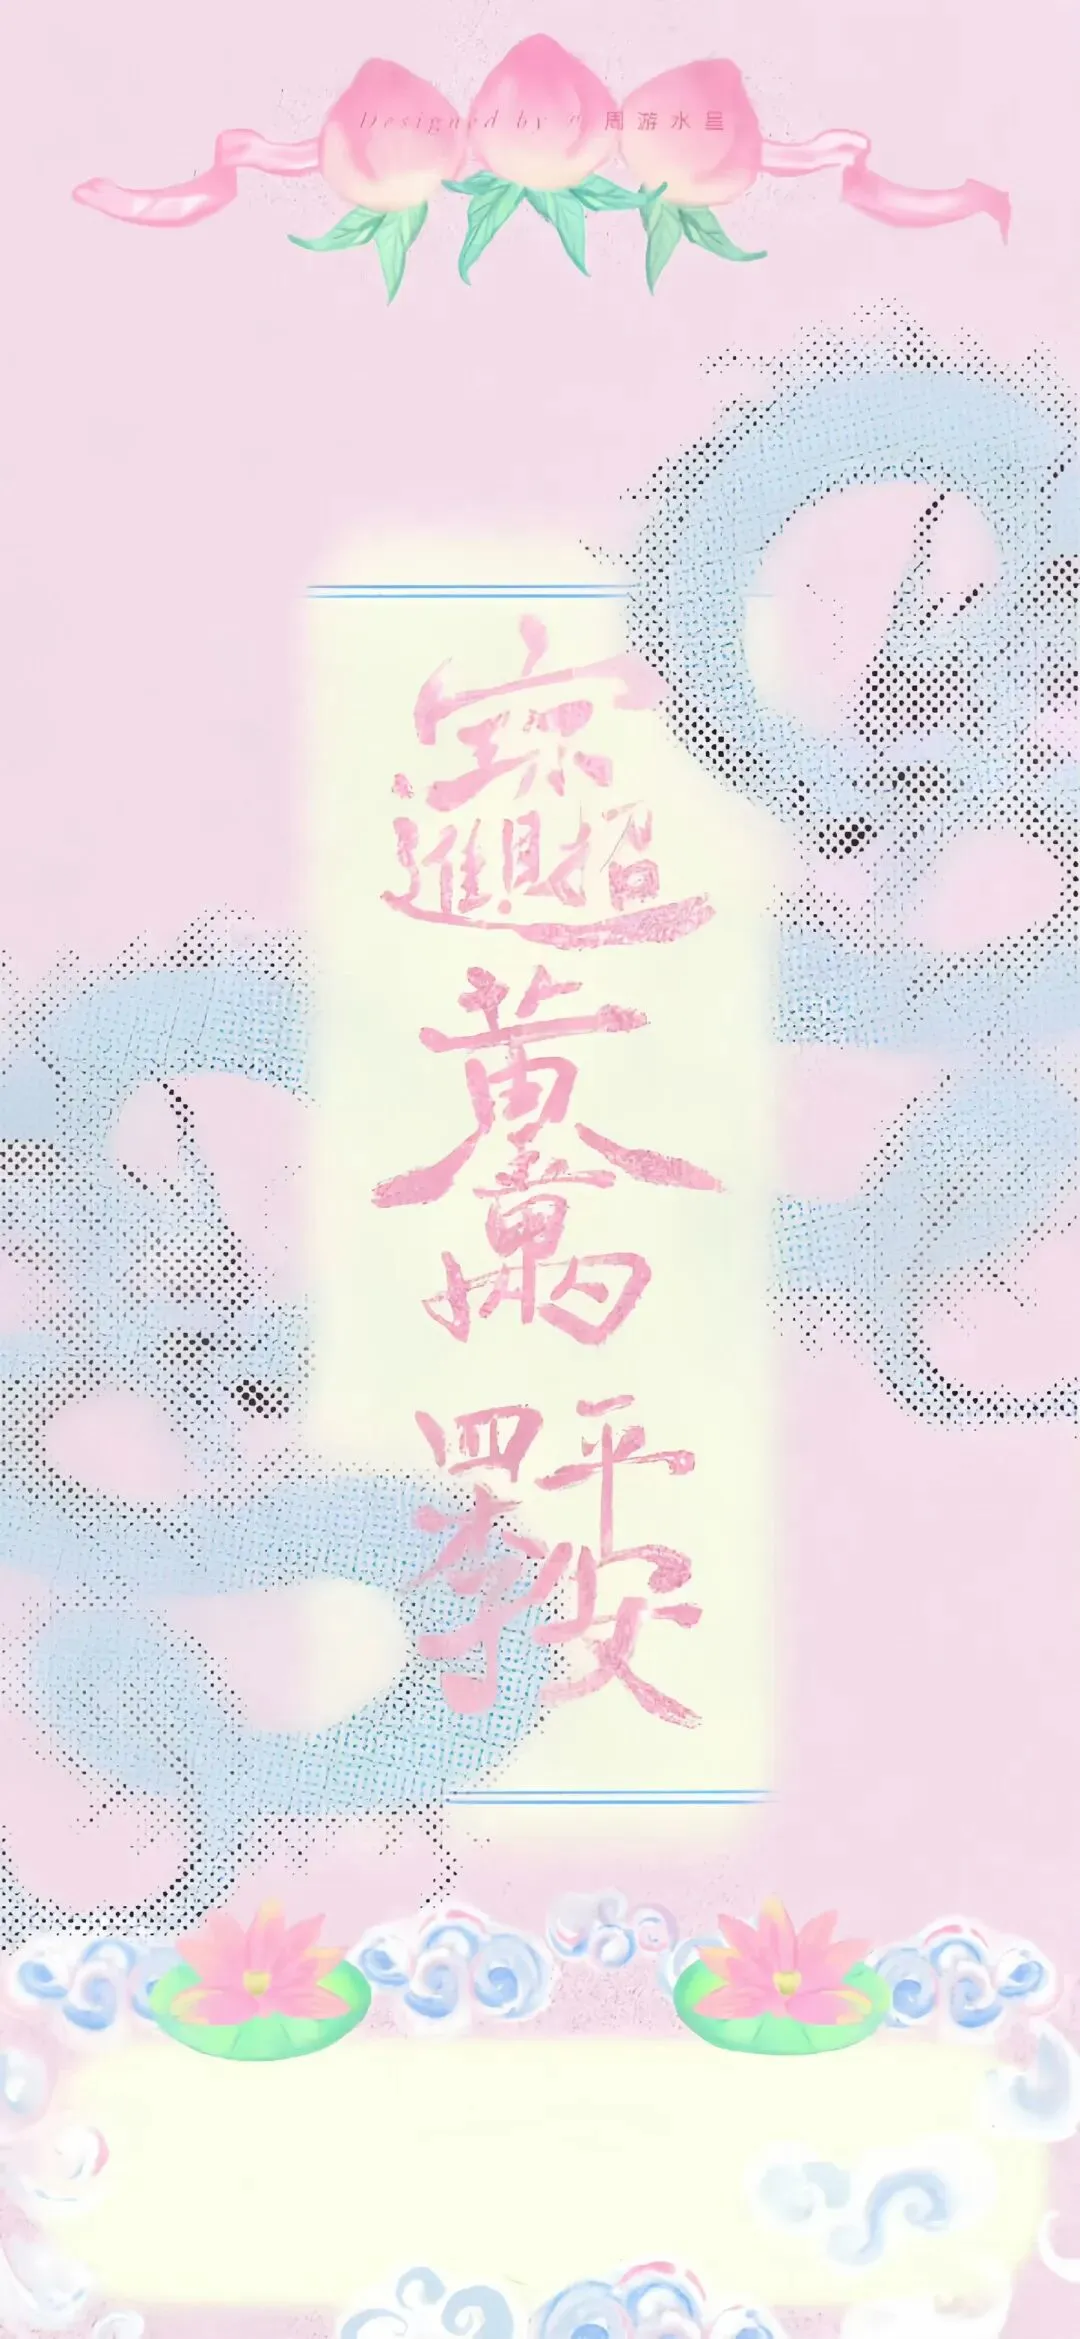 Designed by 周游水星
招財進寶
黃金萬兩
四季平安